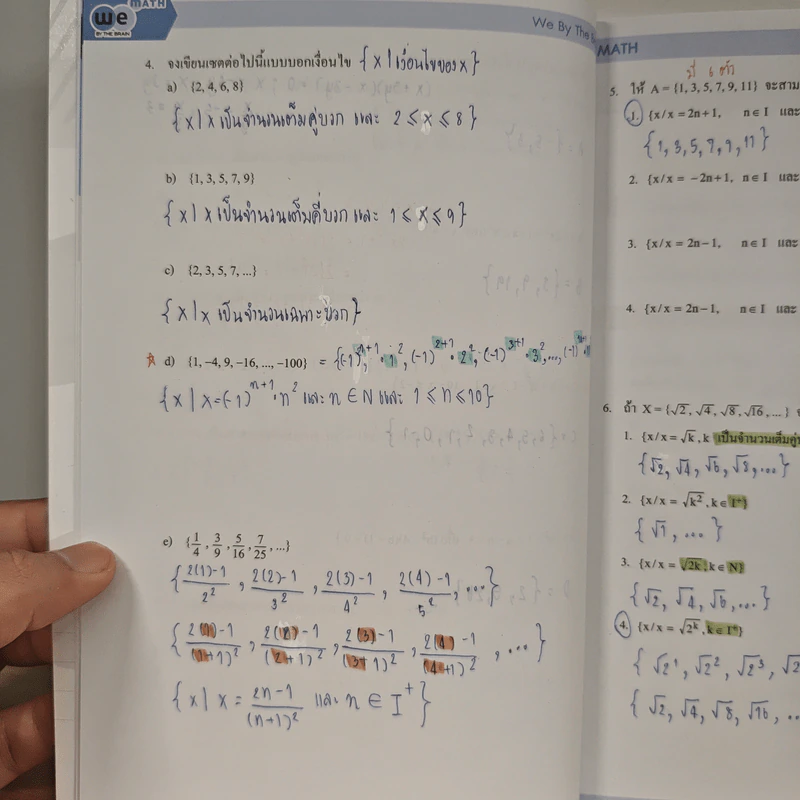 MATH
we
BY THE BRAIN
We By The
4. จงเขียนเซตต่อไปนี้แบบบอกเงื่อนไข {x | เงื่อนไขของ x}
a) {2, 4, 6, 8}
{x | x เป็นจำนวนเต็มคู่บวก และ 2 ≤ x ≤ 8}
b) {1, 3, 5, 7, 9}
{x | x เป็นจำนวนเต็มคี่บวก และ 1 ≤ x ≤ 9}
c) {2, 3, 5, 7, ...}
{x | x เป็นจำนวนเฉพาะบวก}
d) {1, -4, 9, -16, ..., -100} = {(-1)^{n+1}·1², (-1)^{2+1}·2², (-1)^{3+1}·3², ..., (-1)
{x | x = (-1)^{n+1}·n² และ n ∈ N และ 1 ≤ n ≤ 10}
e) {1/4, 3/9, 5/16, 7/25, ...}
{2(1)-1/2², 2(2)-1/3², 2(3)-1/4², 2(4)-1/5², ...}
{2(1)-1/(1+1)², 2(2)-1/(2+1)², 2(3)-1/(3+1)², 2(4)-1/(4+1)², ...}
{x | x = 2n-1/(n+1)² และ n ∈ I⁺}
MATH
มี 6 ตัว
5. ให้ A = {1, 3, 5, 7, 9, 11} จะสาม
1. {x/x = 2n+1, n∈I และ
{1, 3, 5, 7, 9, 11}
2. {x/x = -2n+1, n∈I และ
3. {x/x = 2n-1, n∈I และ
4. {x/x = 2n-1, n∈I และ
6. ถ้า X = {√2, √4, √8, √16, ...}
1. {x/x = √k, k เป็นจำนวนเต็มคู่
{√2, √4, √6, √8, ...}
2. {x/x = √k², k∈I⁺}
{√1, ...}
3. {x/x = √2k, k∈N}
{√2, √4, √6, ...}
4. {x/x = √2ᵏ, k∈I⁺}
{√2¹, √2², √2³, √2
{√2, √4, √8, √16, ...